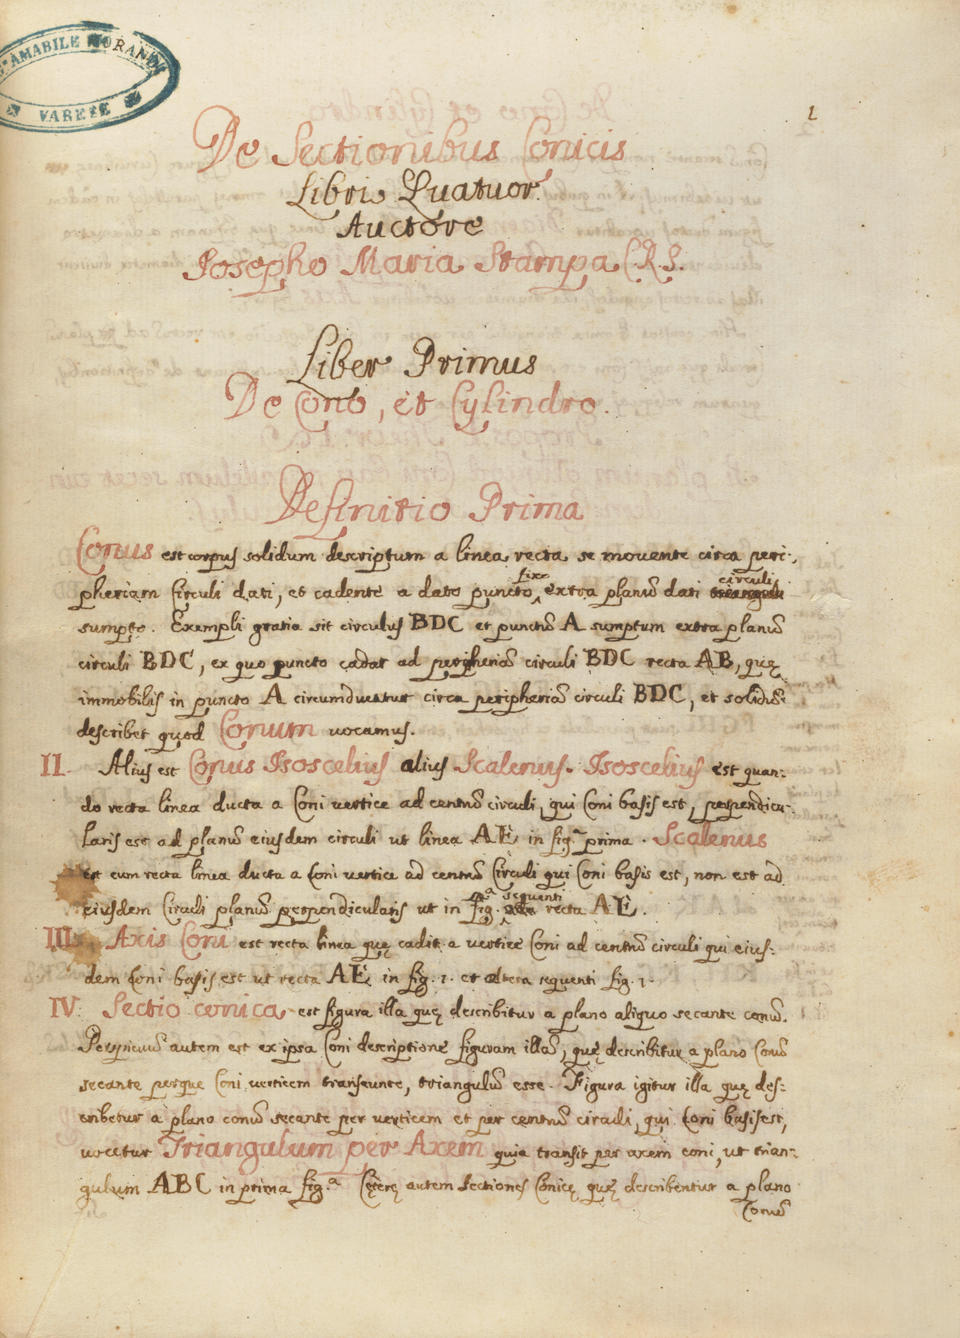 AMABILE MORANDI
VARESE
1
De Sectionibus Conicis
Libri Quatuor.
Auctore
Josepho Maria Stampa C.R.S.
Liber Primus
De Cono, et Cylindro.
Definitio Prima
Conus est corpus solidum descriptum a linea recta se movente circa peri-
fixo circuli
pheriam Circuli dati, et cadente a dato puncto, extra planū dati
sumpto. Exempli gratia sit circulus BDC et punctū A sumptum extra planū
circuli BDC, ex quo puncto cadat ad peripheriā circuli BDC recta AB, quę
immobilis in puncto A circumducatur circa peripheriā circuli BDC, et solidū
describet quod Conum vocamus.
II. Alius est Conus Isoscelius alius Scalenus. Isoscelius est quan-
do recta linea ducta a Coni vertice ad centrū circuli, qui Coni basis est, perpendicu-
laris est ad planū eiusdem circuli ut linea AE in fig.ª prima. Scalenus
est cum recta linea ducta a Coni vertice ad centrū Circuli qui Coni basis est, non est ad
sequenti
eiusdem Circuli planū perpendicularis ut in fig.ª recta AE.
III. Axis Coni est recta linea quę cadit a vertice Coni ad centrū circuli qui eius-
dem Coni basis est ut recta AE in fig. 1. et altera sequenti fig. 1.
IV. Sectio conica est figura illa quę describitur a plano aliquo secante conū.
Perspicuū autem est ex ipsa Coni descriptione figuram illā, quę describitur a plano Conū
secante perque Coni verticem transeunte, triangulū esse. Figura igitur illa quę des-
cribetur a plano conū secante per verticem et per centrū circuli, qui Coni basis est,
vocetur Triangulum per Axem quia transit per axem coni, ut trian-
gulum ABC in prima fig.ª Cęterę autem Sectiones Conicę quę describentur a plano
Conū